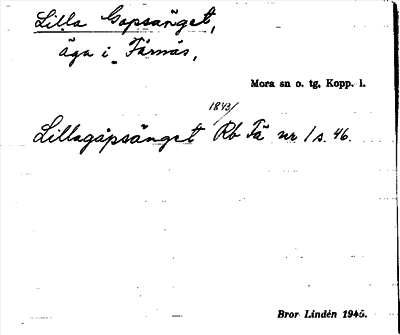 Lilla Gopsänget,
äga i Färnäs,
Mora sn o. tg, Kopp. l.
1843/
Lillagåpsänget Rb Fä nr 1 s. 46.
Bror Lindén 1945.